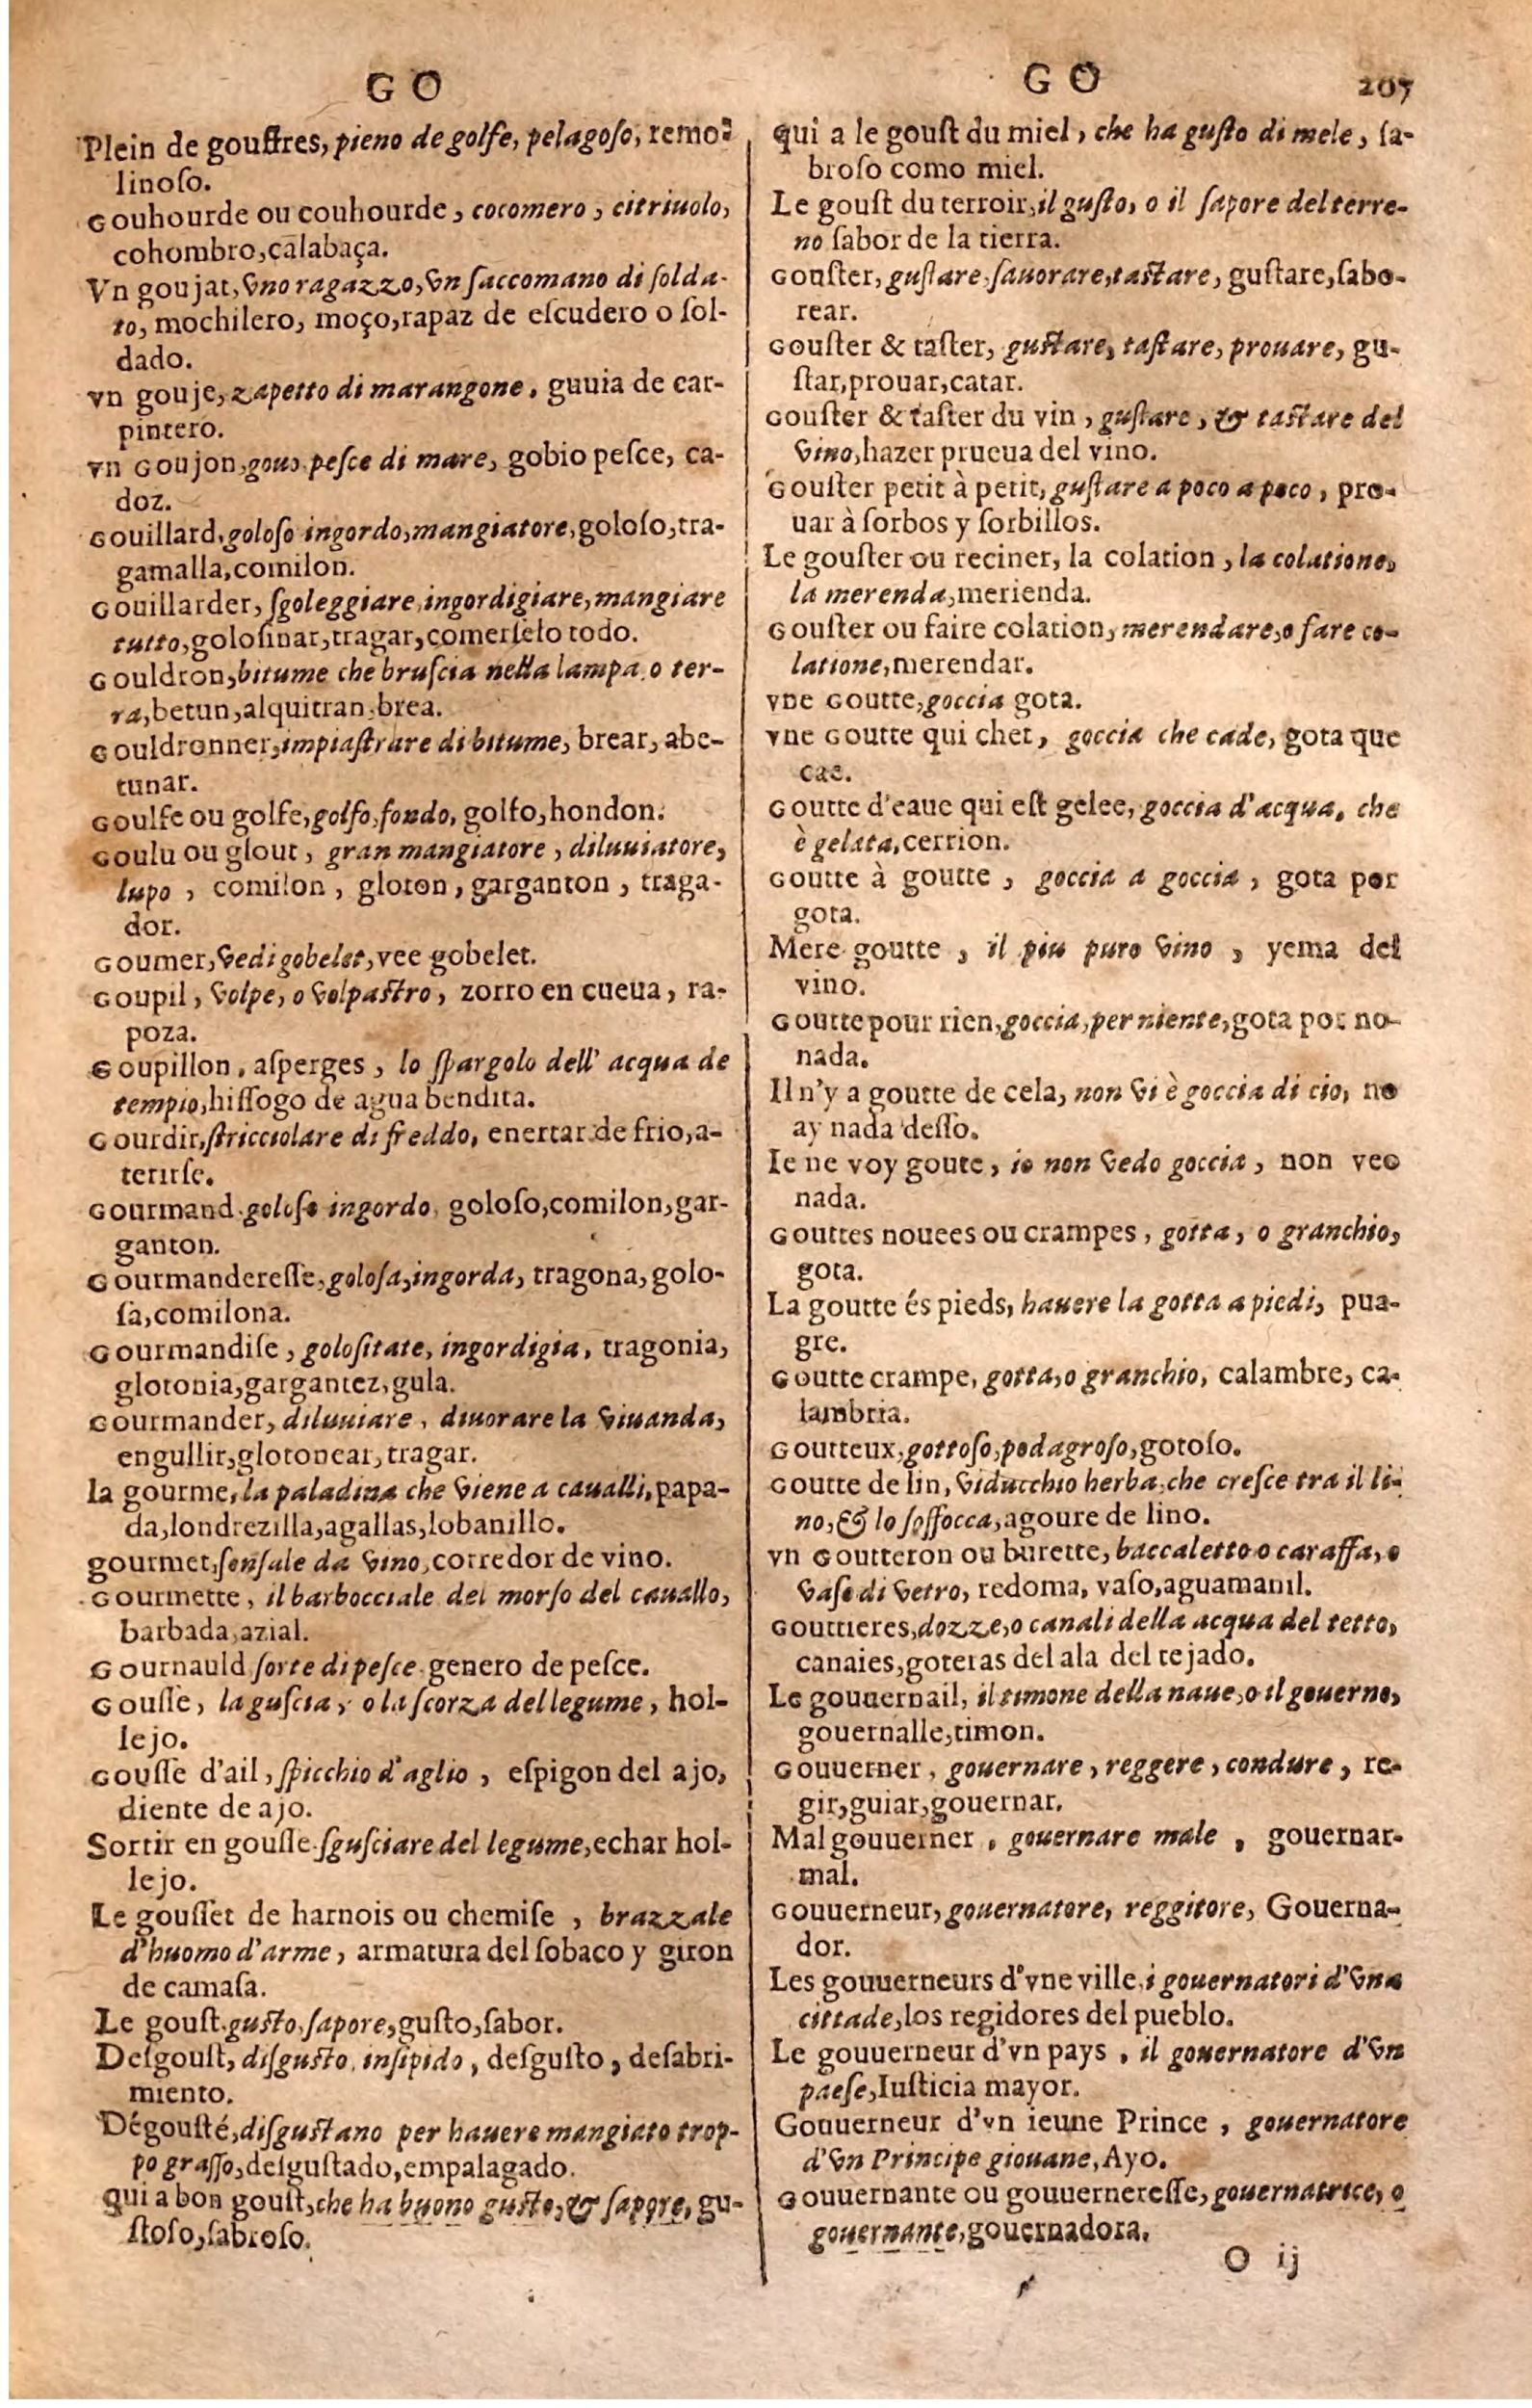 G O
Plein de gouffres, pieno de golfe, pelagoſo, remo-
linoſo.
Gouhourde ou couhourde, cocomero, citriuolo,
cohombro, calabaça.
Vn goujat, vno ragazzo, vn ſaccomano di ſolda-
to, mochilero, moço, rapaz de eſcudero o ſol-
dado.
vn gouje, zapetto di marangone, guuia de car-
pintero.
vn Goujon, gouo peſce di mare, gobio peſce, ca-
doz.
Gouillard, goloſo ingordo, mangiatore, goloſo, tra-
gamalla, comilon.
Gouillarder, ſgoleggiare, ingordigiare, mangiare
tutto, goloſinar, tragar, comerſelo todo.
Gouldron, bitume che bruſcia nella lampa o ter-
ra, betun, alquitran, brea.
Gouldronner, impiaſtrare di bitume, brear, abe-
tunar.
Goulfe ou golfe, golfo, fondo, golfo, hondon.
Goulu ou glout, gran mangiatore, diluuiatore,
lupo, comilon, gloton, garganton, traga-
dor.
Goumer, vedi gobelet, vee gobelet.
Goupil, volpe, o volpaſtro, zorro en cueua, ra-
poza.
Goupillon, aſperges, lo ſpargolo dell' acqua de
tempio, hiſſogo de agua bendita.
Gourdir, ſtricciolare di freddo, enertar de frio, a-
terirſe.
Gourmand goloſo ingordo, goloſo, comilon, gar-
ganton.
Gourmandereſſe, goloſa, ingorda, tragona, golo-
ſa, comilona.
Gourmandiſe, goloſitate, ingordigia, tragonia,
glotonia, gargantez, gula.
Gourmander, diluuiare, diuorare la viuanda,
engullir, glotonear, tragar.
la gourme, la paladina che viene a caualli, papa-
da, londrezilla, agallas, lobanillo.
gourmet, ſenſale da vino, corredor de vino.
Gourmette, il barbocciale del morſo del cauallo,
barbada, azial.
Gournauld ſorte di peſce genero de peſce.
Gouſſe, la guſcia, o la ſcorza del legume, hol-
lejo.
Gouſſe d'ail, ſpicchio d'aglio, eſpigon del ajo,
diente de ajo.
Sortir en gouſſe ſguſciare del legume, echar hol-
lejo.
Le gouſſet de harnois ou chemiſe, brazzale
d'huomo d'arme, armatura del ſobaco y giron
de camaſa.
Le gouſt guſto, ſapore, guſto, ſabor.
Deſgouſt, diſguſto, inſipido, deſguſto, deſabri-
miento.
Dégouſté, diſguſtano per hauere mangiato trop-
po graſſo, deſguſtado, empalagado.
qui a bon gouſt, che ha buono guſto, & ſapore, gu-
ſtoſo, ſabroſo.
G O 207
qui a le gouſt du miel, che ha guſto di mele, ſa-
broſo como miel.
Le gouſt du terroir, il guſto, o il ſapore del terre-
no ſabor de la tierra.
Gouſter, guſtare, ſauorare, taſtare, guſtare, ſabo-
rear.
Gouſter & taſter, guſtare, taſtare, prouare, gu-
ſtar, prouar, catar.
Gouſter & taſter du vin, guſtare, & taſtare del
vino, hazer prueua del vino.
Gouſter petit à petit, guſtare a poco a poco, pro-
uar à ſorbos y ſorbillos.
Le gouſter ou reciner, la colation, la colatione,
la merenda, merienda.
Gouſter ou faire colation, merendare, o fare co-
latione, merendar.
vne Goutte, goccia gota.
vne Goutte qui chet, goccia che cade, gota que
cae.
Goutte d'eaue qui eſt gelee, goccia d'acqua, che
è gelata, cerrion.
Goutte à goutte, goccia a goccia, gota por
gota.
Mere goutte, il piu puro vino, yema del
vino.
Goutte pour rien, goccia, per niente, gota por no-
nada.
Il n'y a goutte de cela, non vi è goccia di cio, no
ay nada deſſo.
Ie ne voy goute, io non vedo goccia, non veo
nada.
Gouttes nouees ou crampes, gotta, o granchio,
gota.
La goutte és pieds, hauere la gotta a piedi, pua-
gre.
Goutte crampe, gotta, o granchio, calambre, ca-
lambria.
Goutteux, gottoſo, podagroſo, gotoſo.
Goutte de lin, viducchio herba, che creſce tra il li-
no, & lo ſoffocca, agoure de lino.
vn Goutteron ou burette, baccaletto o caraffa, o
vaſe di vetro, redoma, vaſo, aguamanil.
Gouttieres, dozze, o canali della acqua del tetto,
canales, goteras del ala del tejado.
Le gouuernail, il timone della naue, o il gouerno,
gouernalle, timon.
Gouuerner, gouernare, reggere, condure, re-
gir, guiar, gouernar.
Mal gouuerner, gouernare male, gouernar-
mal.
Gouuerneur, gouernatore, reggitore, Gouerna-
dor.
Les gouuerneurs d'vne ville, i gouernatori d'vna
cittade, los regidores del pueblo.
Le gouuerneur d'vn pays, il gouernatore d'vn
paeſe, Iuſticia mayor.
Gouuerneur d'vn ieune Prince, gouernatore
d'vn Principe giouane, Ayo.
Gouuernante ou gouuernereſſe, gouernatrice, o
gouernante, gouernadora.
O ij